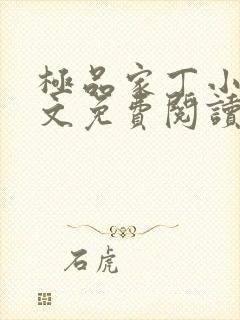 極品家丁小
文免費閱讀
石虎